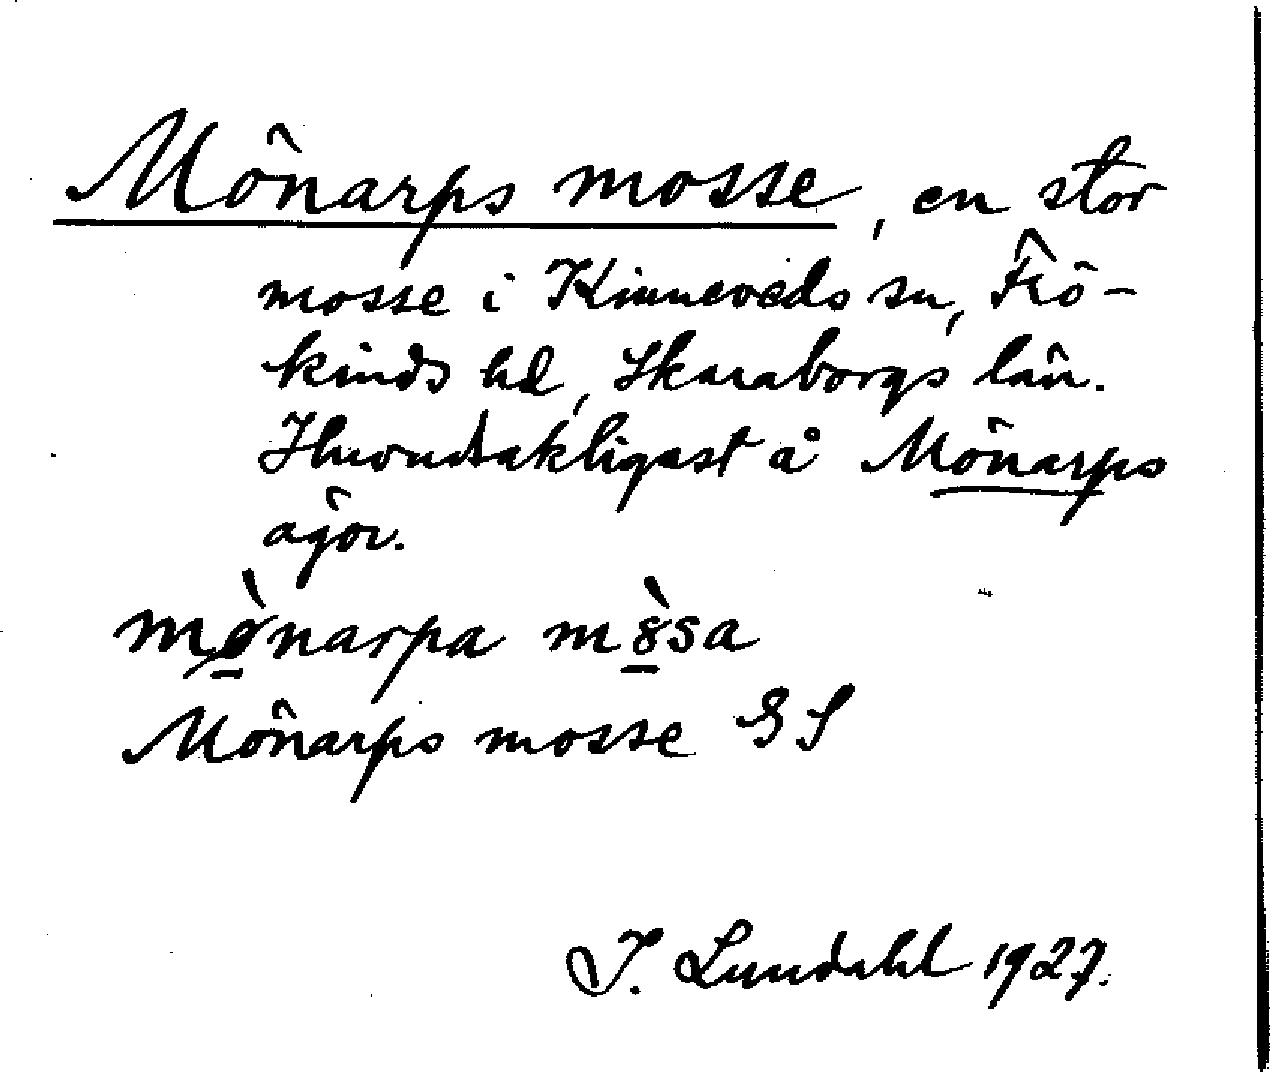 Mönarps mosse, en stor
mosse i Kinneveds sn, Frö-
kinds hd, Skaraborgs län.
Huvudsakligast å Mönarps
ägor.
mø̀narpa mòsa
Mönarps mosse GS
I. Lundahl 1927.